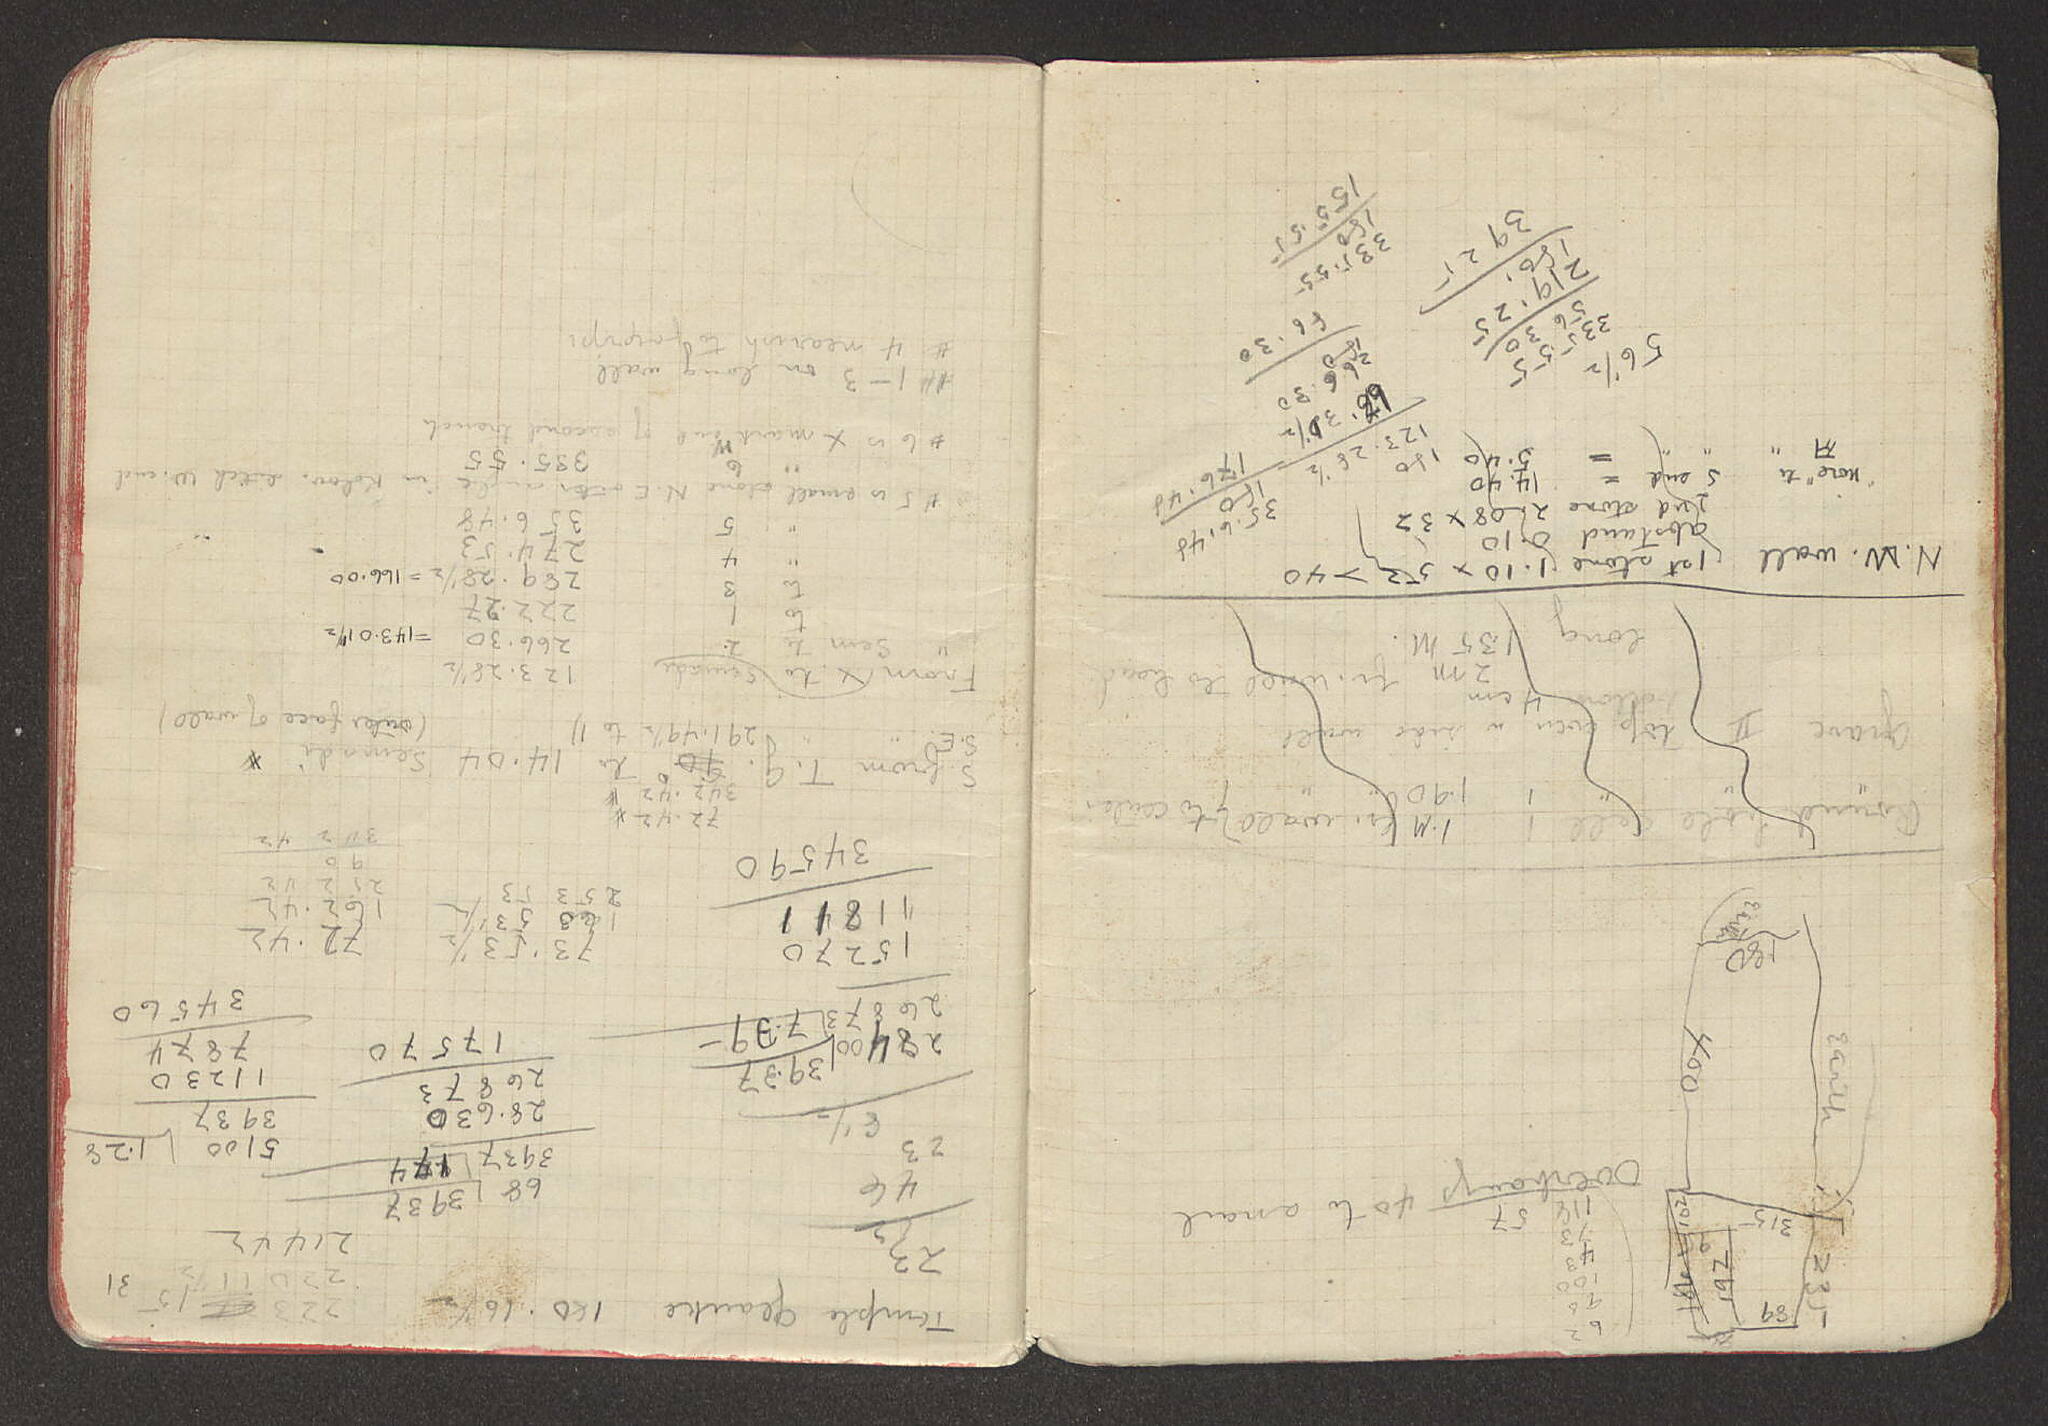 N.W. wall 1st stone 1.10 x 53 > 40
abstand 0.10
2nd stone 2.08 x 32
"nore" to S end = 14.40
" " " = 5.40
56½
355.55
56 30
219.25
180.
39 25
123.28½
180
66.30
266.30
180
86.30
335.55
180
155.55
356.48
180
176.48
Round hole cell 1 1.M fr. wall to center
" " " 1 1.90 " "
Grave II top even w side wall
4 cm
2 m fr. wall to head
long 1.35 M.
180
400
earth
Overhangs 40 to a nail
57
118
73
43
100
90
62
315
102
197
235
89
Temple Glauke 180.16½
223 15
220 11½
31
21442
23
46
23
8½
68 | 3937
3937 | 174
28.630
26873
17570
5100 | 1.28
3937
11230
7874
34560
284 | 39.37
00 | 7.39
26873
15270
11811
34590
73.53½
163 53½
253 53
72.42
162.42
252 42
90
342 42
72.42 *
342.42 *
S. from T.g. 90 to 14.04 Semadi *
S.E. " " 291.49½ to 11 (outer face of wall)
From X to Semadi 123.28½
" Sem to 2. 266.30 = 143.01½
to 1 222.27
to 3 289.28½ = 166.00
" 4 274.53
" 5 356.48
# 5 is small stone N.E. outer angle in Kolov. ditch W. end
" 6 335.55
# 6 is X mark W end of second trench
## 1–3 on long wall
# 4 nearish to